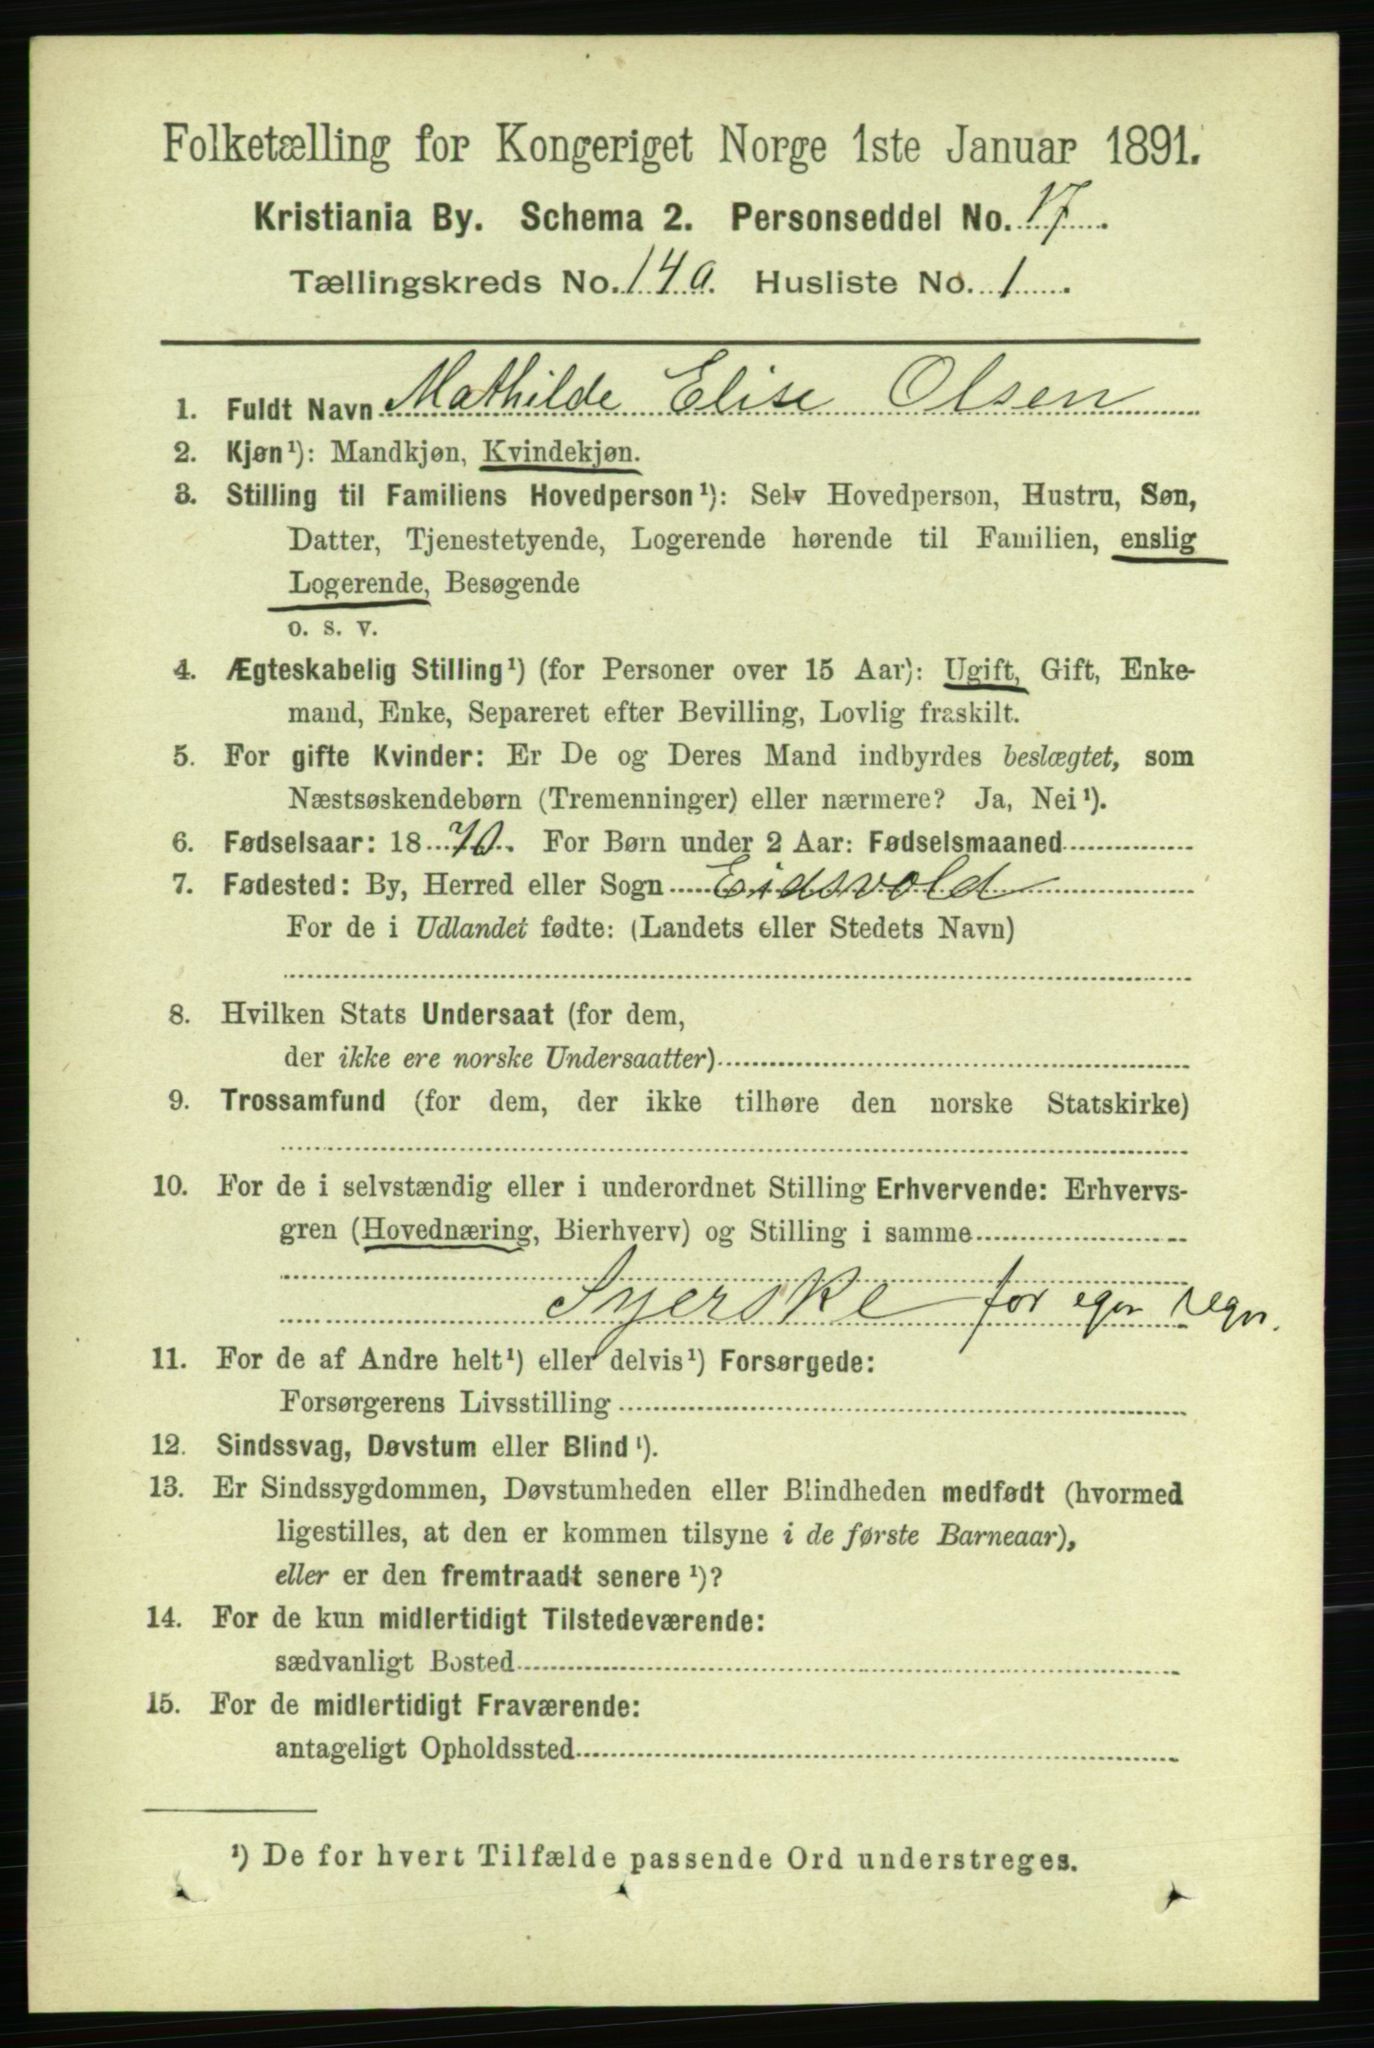 Folketælling for Kongeriget Norge 1ste Januar 1891.
Kristiania By. Schema 2. Personseddel No. 17.
Tællingskreds No. 14a. Husliste No. 1.
1. Fuldt Navn Mathilde Elise Olsen
2. Kjøn¹): Mandkjøn, Kvindekjøn.
3. Stilling til Familiens Hovedperson¹): Selv Hovedperson, Hustru, Søn,
Datter, Tjenestetyende, Logerende hørende til Familien, enslig
Logerende, Besøgende
o. s. v.
4. Ægteskabelig Stilling¹) (for Personer over 15 Aar): Ugift, Gift, Enke-
mand, Enke, Separeret efter Bevilling, Lovlig fraskilt.
5. For gifte Kvinder: Er De og Deres Mand indbyrdes beslægtet, som
Næstsøskendebørn (Tremenninger) eller nærmere? Ja, Nei¹).
6. Fødselsaar: 1870. For Børn under 2 Aar: Fødselsmaaned
7. Fødested: By, Herred eller Sogn Eidsvold
For de i Udlandet fødte: (Landets eller Stedets Navn)
8. Hvilken Stats Undersaat (for dem,
der ikke ere norske Undersaatter)
9. Trossamfund (for dem, der ikke tilhøre den norske Statskirke)
10. For de i selvstændig eller i underordnet Stilling Erhvervende: Erhvervs-
gren (Hovednæring, Bierhverv) og Stilling i samme
Syerske for egen regn.
11. For de af Andre helt¹) eller delvis¹) Forsørgede:
Forsørgerens Livsstilling
12. Sindssvag, Døvstum eller Blind¹).
13. Er Sindssygdommen, Døvstumheden eller Blindheden medfødt (hvormed
ligestilles, at den er kommen tilsyne i de første Barneaar),
eller er den fremtraadt senere¹)?
14. For de kun midlertidigt Tilstedeværende:
sædvanligt Bosted
15. For de midlertidigt Fraværende:
antageligt Opholdssted
¹) De for hvert Tilfælde passende Ord understreges.